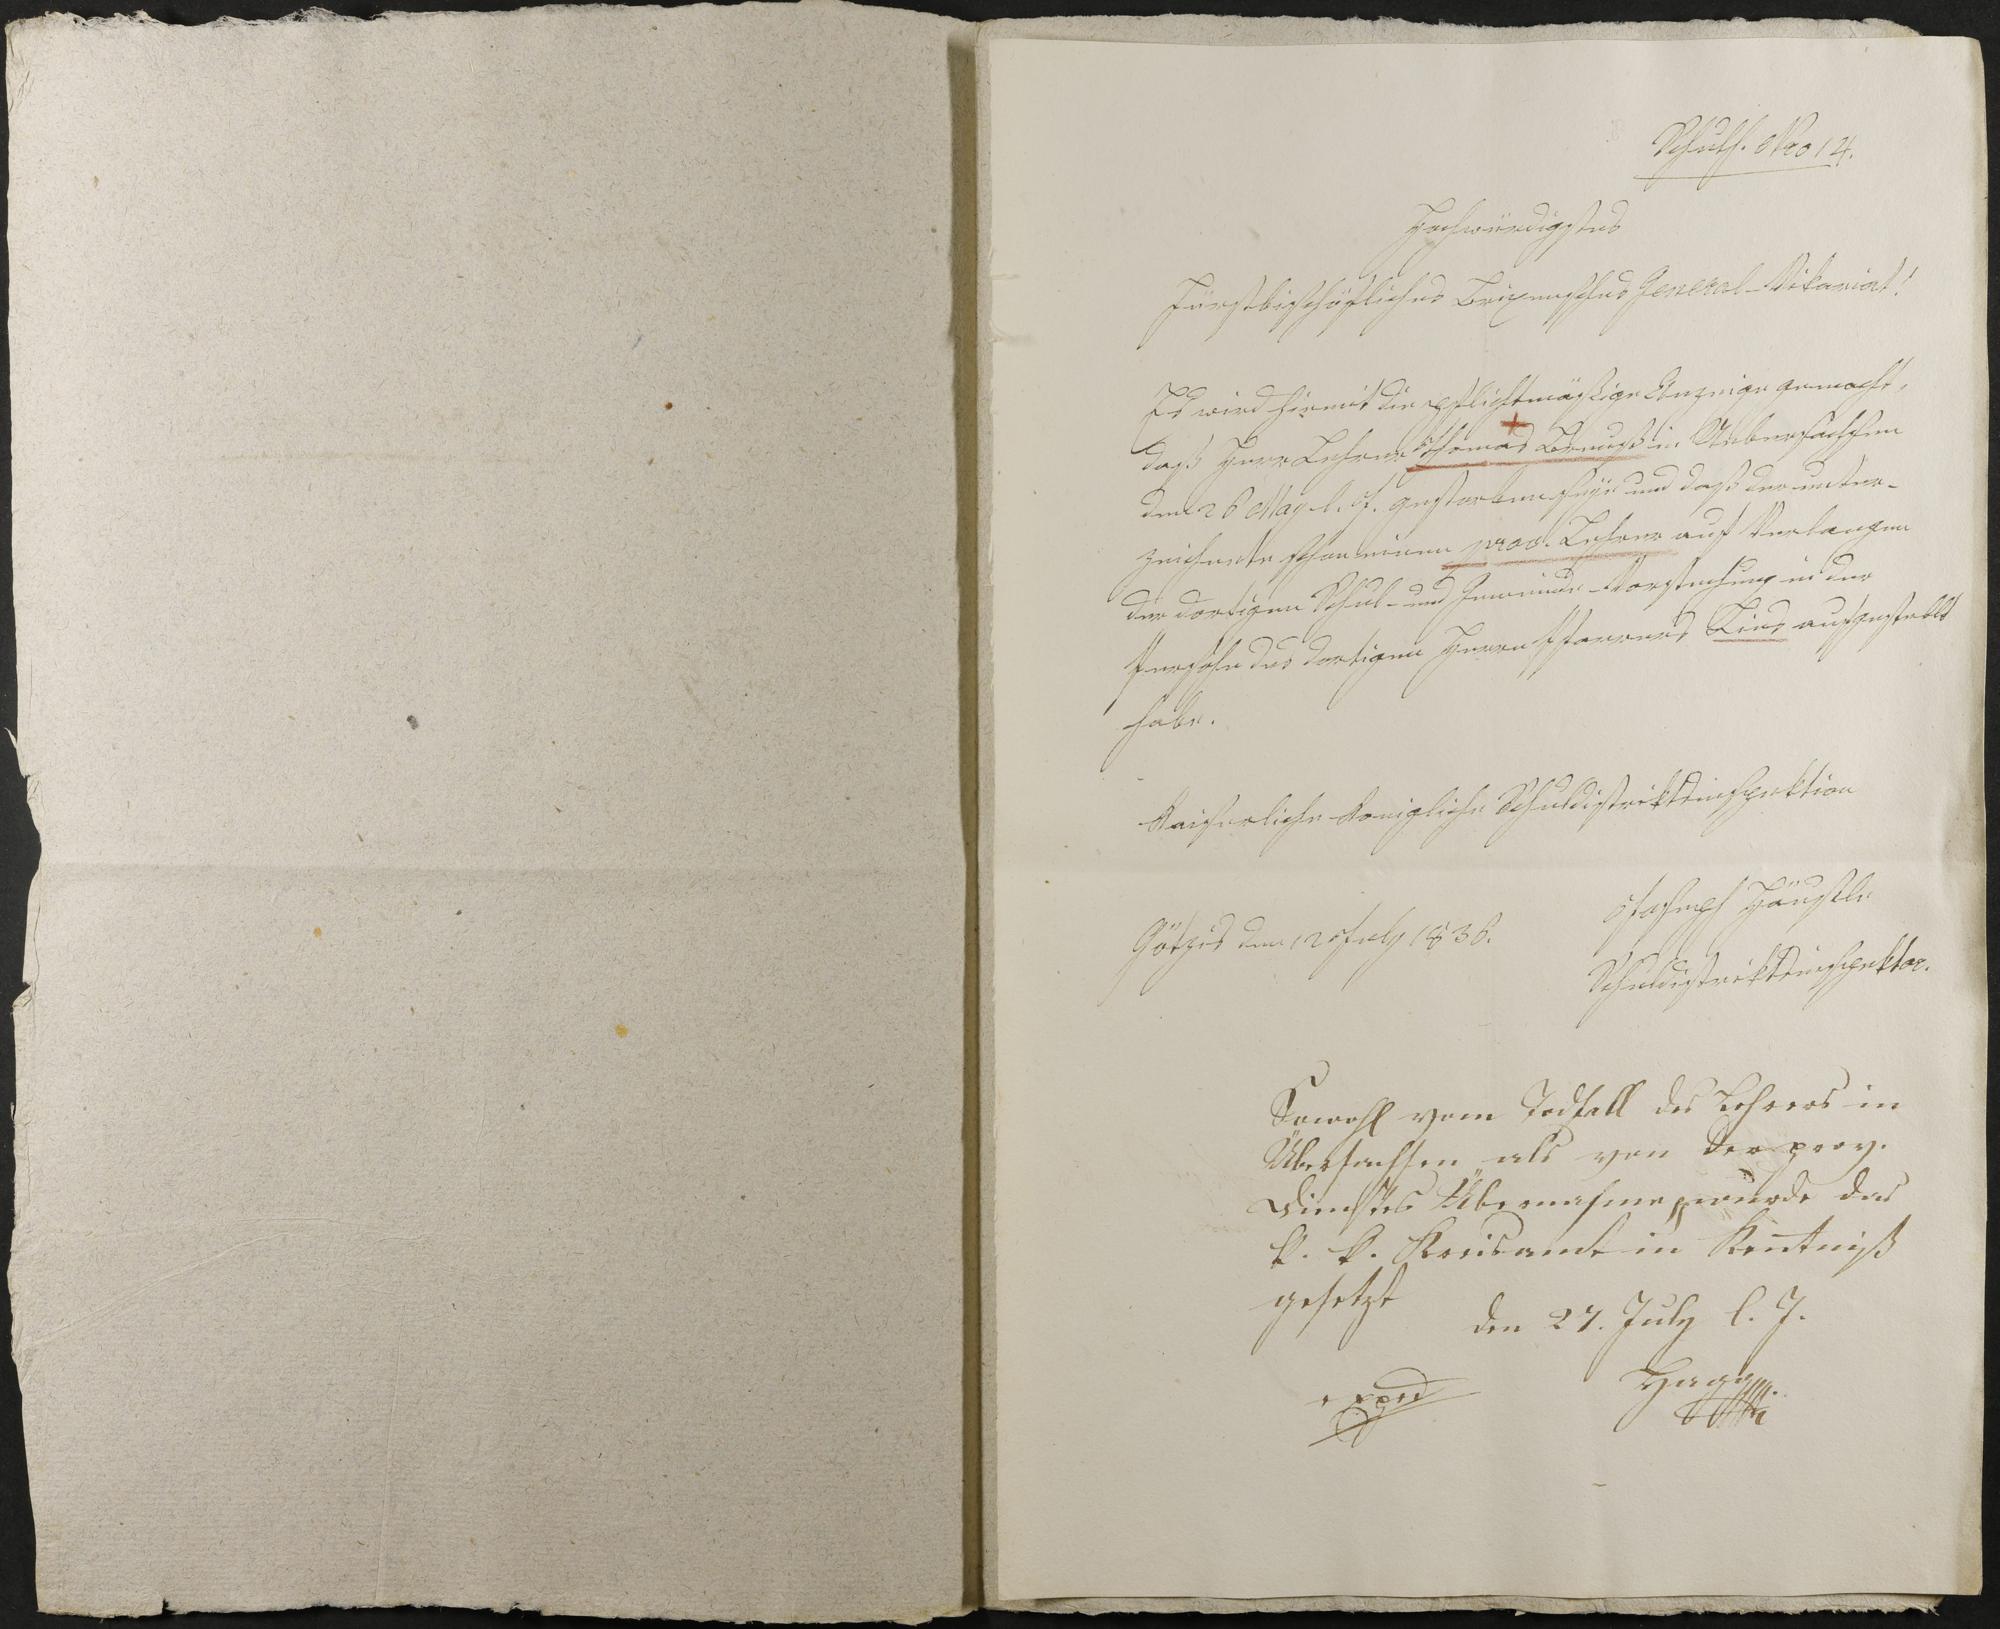 Schuls. Nro 14.
Hochwürdigstes
Fürstbischöfliches Brixensches General-Vikariat!
Es wird hiemit die pflichtmäßige Anzeige gemacht,
daß Herr Lehrer Thomas in Uebersachsen
den 26 May l. J. gestorben seye und daß der unter-
zeichnete schon einen prov. Lehrer auf Verlangen
der dortigen Schul- und Gemeinde-Vorstehung in der
Person des dortigen Herrn Pfarrers aufgestellt
habe.
Kaiserliche Königliche Schuldistriktsinspektion
Götzis den 12 July 1836.
Joseph Häusle
Schuldistriktsinspektor.
Sowohl vom Todfall des Lehrers in
Übersachsen als von der prov.
Dienstes Übernahme wurde das
k. k. Kreisamt in Kentniß
gesetzt
den 27. July l. J.
exped